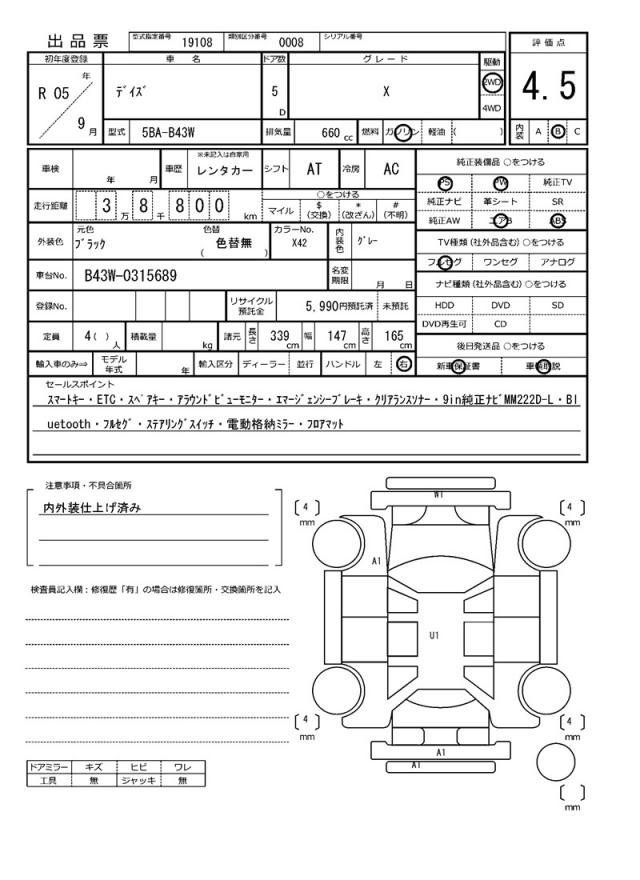 出品票 型式指定番号 19108 類別区分番号 0008 シリアル番号
評価点
4.5
初年度登録 車名 ドア数 グレード 駆動
R 05 年 9 月
ﾃﾞｲｽﾞ 5 D X 2WD 4WD
型式 5BA-B43W 排気量 660 cc 燃料 ガソリン 軽油 ( ) 内装 A B C
車検 年 月 車歴 ※未記入は自家用 レンタカー シフト AT 冷房 AC
純正装備品 ○をつける
PS PW 純正TV
純正ナビ 革シート SR
純正AW エアB ABS
走行距離 3 万 8 千 8 0 0 km ○をつける
マイル $ (交換) * (改ざん) # (不明)
外装色 元色 ﾌﾞﾗｯｸ 色替 ( 色替無 ) カラーNo. X42 内装色 ｸﾞﾚｰ
TV種類 (社外品含む) ○をつける
フルセグ ワンセグ アナログ
車台No. B43W-0315689 名変期限 月 日
ナビ種類 (社外品含む) ○をつける
HDD DVD SD
DVD再生可 CD
登録No. リサイクル預託金 5,990円預託済 未預託
定員 4 ( ) 人 積載量 kg 諸元 長さ 339 cm 幅 147 cm 高さ 165 cm
後日発送品 ○をつける
新車保証書 車輌取説
輸入車のみ⇒ モデル年式 年 輸入区分 ディーラー 並行 ハンドル 左 右
セールスポイント
ｽﾏｰﾄｷｰ・ETC・ｽﾍﾟｱｷｰ・ｱﾗｳﾝﾄﾞﾋﾞｭｰﾓﾆﾀｰ・ｴﾏｰｼﾞｪﾝｼｰﾌﾞﾚｰｷ・ｸﾘｱﾗﾝｽｿﾅｰ・9in純正ﾅﾋﾞMM222D-L・Bl
uetooth・ﾌﾙｾｸﾞ・ｽﾃｱﾘﾝｸﾞｽｲｯﾁ・電動格納ﾐﾗｰ・ﾌﾛｱﾏｯﾄ
注意事項・不具合箇所
内外装仕上げ済み
検査員記入欄：修復歴「有」の場合は修復箇所・交換箇所を記入
ドアミラー キズ ヒビ ワレ
工具 無 ジャッキ 無
W1
〔 4 〕 mm
〔 4 〕 mm
A1
U1
〔 4 〕 mm
〔 4 〕 mm
A1
A1
〔 〕 mm